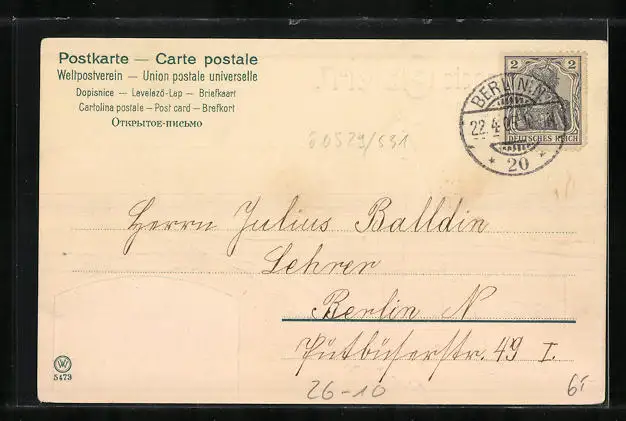 Postkarte — Carte postale
Weltpostverein — Union postale universelle
Dopisnice — Levelező-Lap — Briefkaart
Cartolina postale — Post card — Brefkort
Открытое-письмо
2 2
DEUTSCHES REICH
BERLIN N
22.4.
* 20 *
Herrn Julius Balldin
Lehrer
Berlin N
Pütbüserstr. 49 I.
W
5479
26-10